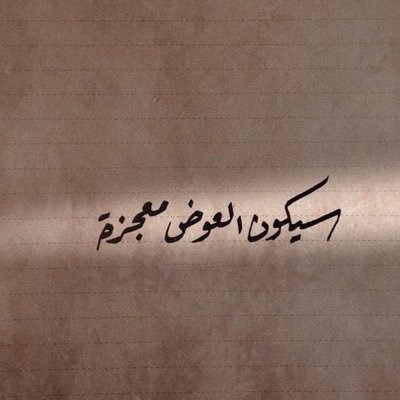 سيكون العوض معجزة